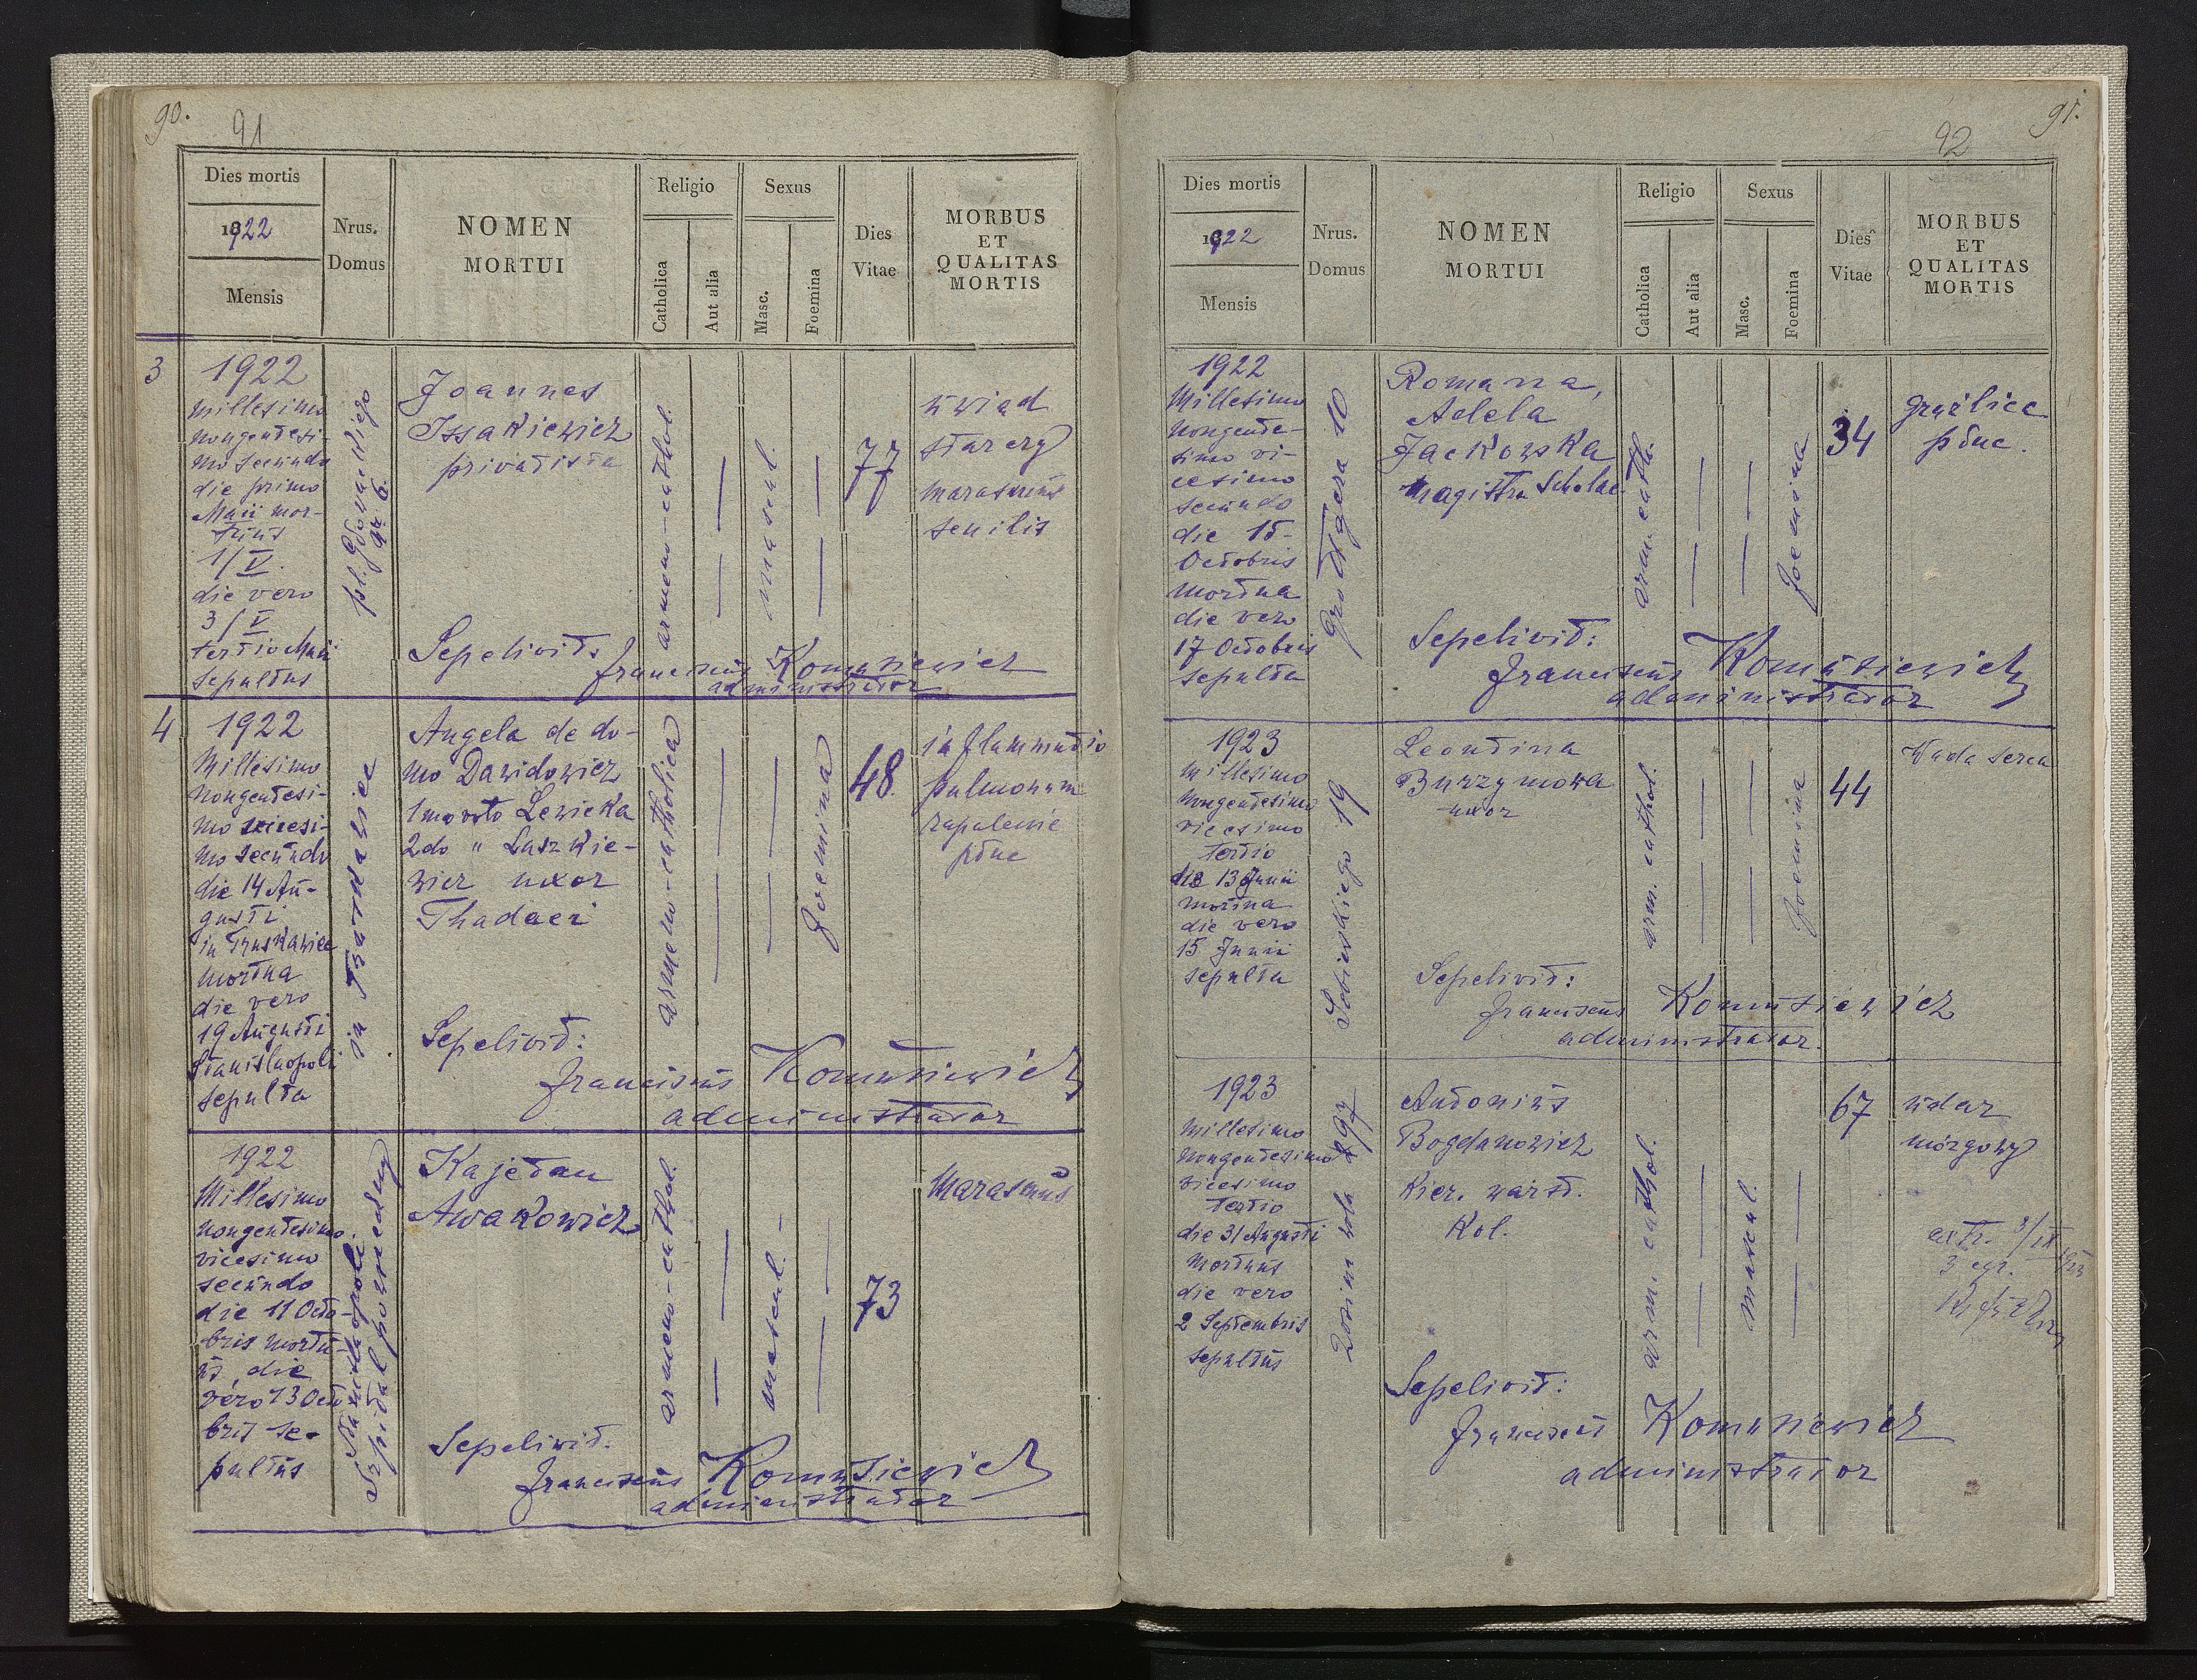 90.
91
Dies mortis
1922
Mensis
Nrus.
Domus
NOMEN
MORTUI
Religio
Catholica
Aut alia
Sexus
Masc.
Foemina
Dies
Vitae
MORBUS
ET
QUALITAS
MORTIS
3
1922
Millesimo
nongentesi-
mo secundo
die primo
Maii mor-
tuus
1/V.
die vero
3/V
tertio Maii
sepultus
nr 6.
Joannes
Issakiewicz
privatista
armeno-cathol.
mascul.
77
uwiad
starczy
marasmus
senilis
Sepelivit.
Franciscus Komusiewicz
administrator
4
1922
Millesimo
nongentesi-
mo vicesi-
mo secundo
die 14 Au-
gusti
in Truskawiec
mortua
die vero
19 Augusti
Stanislaopoli
sepulta
in Truskawiec
Angela de do-
mo Dawidowicz
1mo voto Lewicka
2do " Laszkie-
wicz uxor
Thadaei
armeno-catholica
foemina
48.
inflammatio
pulmonum
zapalenie
płuc
Sepelivit:
Franciscus Komusiewicz
administrator
1922
Millesimo
nongentesimo
vicesimo
secundo
die 11 Octo-
bris mortu-
us, die
vero 13 Octo
bris se-
pultus
Stanislaopoli
Szpital powszechny
Kajetan
Awakowicz
armeno-cathol.
mascul.
73
Marasmus
Sepelivit.
Franciscus Komusiewicz
administrator
91.
92
Dies mortis
1922
Mensis
Nrus.
Domus
NOMEN
MORTUI
Religio
Catholica
Aut alia
Sexus
Masc.
Foemina
Dies
Vitae
MORBUS
ET
QUALITAS
MORTIS
1922
Millesimo
nongente-
simo vi-
cesimo
secundo
die 15-
Octobris
mortua
die vero
17 Octobris
sepulta
Grottgera 10
Romana,
Adela
Jackowska
magistra scholae
arm. cath.
foemina
34
gruźlica
płuc.
Sepelivit:
Franciscus Komusiewicz
administrator
1923
Millesimo
nongentesimo
vicesimo
tertio
die 13 Junii
mortua
die vero
15 Junii
sepulta
Sobieskiego 19
Leontina
Burzymowa
uxor
arm. cathol.
foemina
44
Wada serca
Sepelivit:
Franciscus Komusiewicz
administrator.
1923
Millesimo
nongentesimo
vicesimo
tertio
die 31 Augusti
mortuus
die vero
2 Septembris
sepultus
Antonius
Bogdanowicz
kier. warst.
kol.
arm. cathol.
mascul.
67
udar
mózgowy
Sepelivit:
Franciscus Komusiewicz
administrator